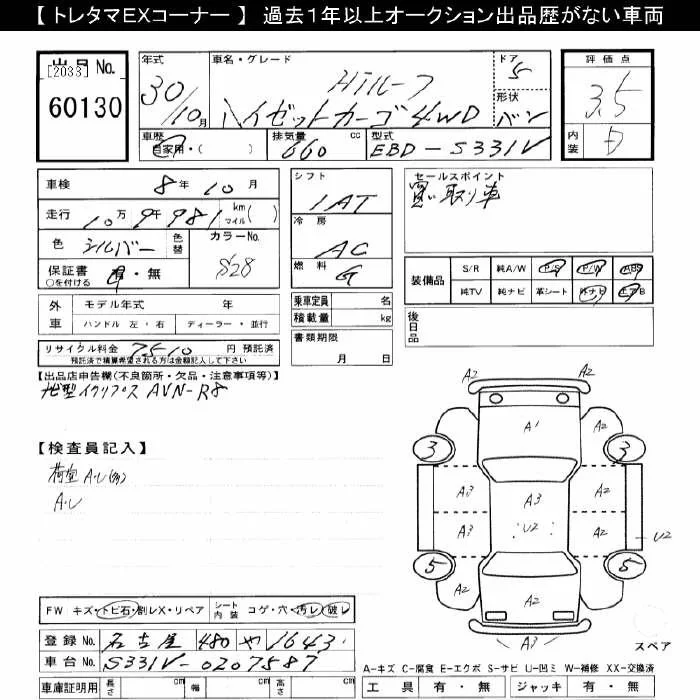 【 トレタマEXコーナー 】 過去１年以上オークション出品歴がない車両
出品 No.
[2033]
60130
年式
30/10月
車名・グレード
ハイルーフ
ハイゼットカーゴ4WD
ドア
5
形状
バン
評価点
3.5
内装
D
車歴
自家用・( )
排気量
660 cc
型式
EBD-S331V
車検 8年 10月
走行 10万 9千 981 km マイル( )
色 シルバー 色替 カラーNo. S28
保証書 有・無
○を付ける
外車 モデル年式 年
ハンドル 左・右 ディーラー・並行
リサイクル料金 7510 円 預託済
預託済で精算希望される方は金額記入して下さい
シフト
IAT
冷房
AC
燃料
G
乗車定員 名
積載量 kg
書類期限
月 日
セールスポイント
買い取り車
装備品 S/R 純A/W P/S P/W ABS
純TV 純ナビ 革シート 外ナビ エアB
後日品
【出品店申告欄(不良箇所・欠品・注意事項等)】
イクリプス AVN-R8
【検査員記入】
荷室 A・U
A・U
FW キズ・トビ石・割レX・リペア シート内装 コゲ・穴・汚レ・破レ
登録 No. 名古屋 480 や 1643
車台 No. S331V-0207587
車庫証明用 長さ cm 幅 cm 高さ cm
A2 A2
A2 A1 A2
3 3
A3 A3 A2
A3 U2 A2 U2
5 5
A2 A2
A3
スペア
A-キズ C-腐食 E-エクボ S-サビ U-凹ミ W-補修 XX-交換済
工具 有・無 ジャッキ 有・無